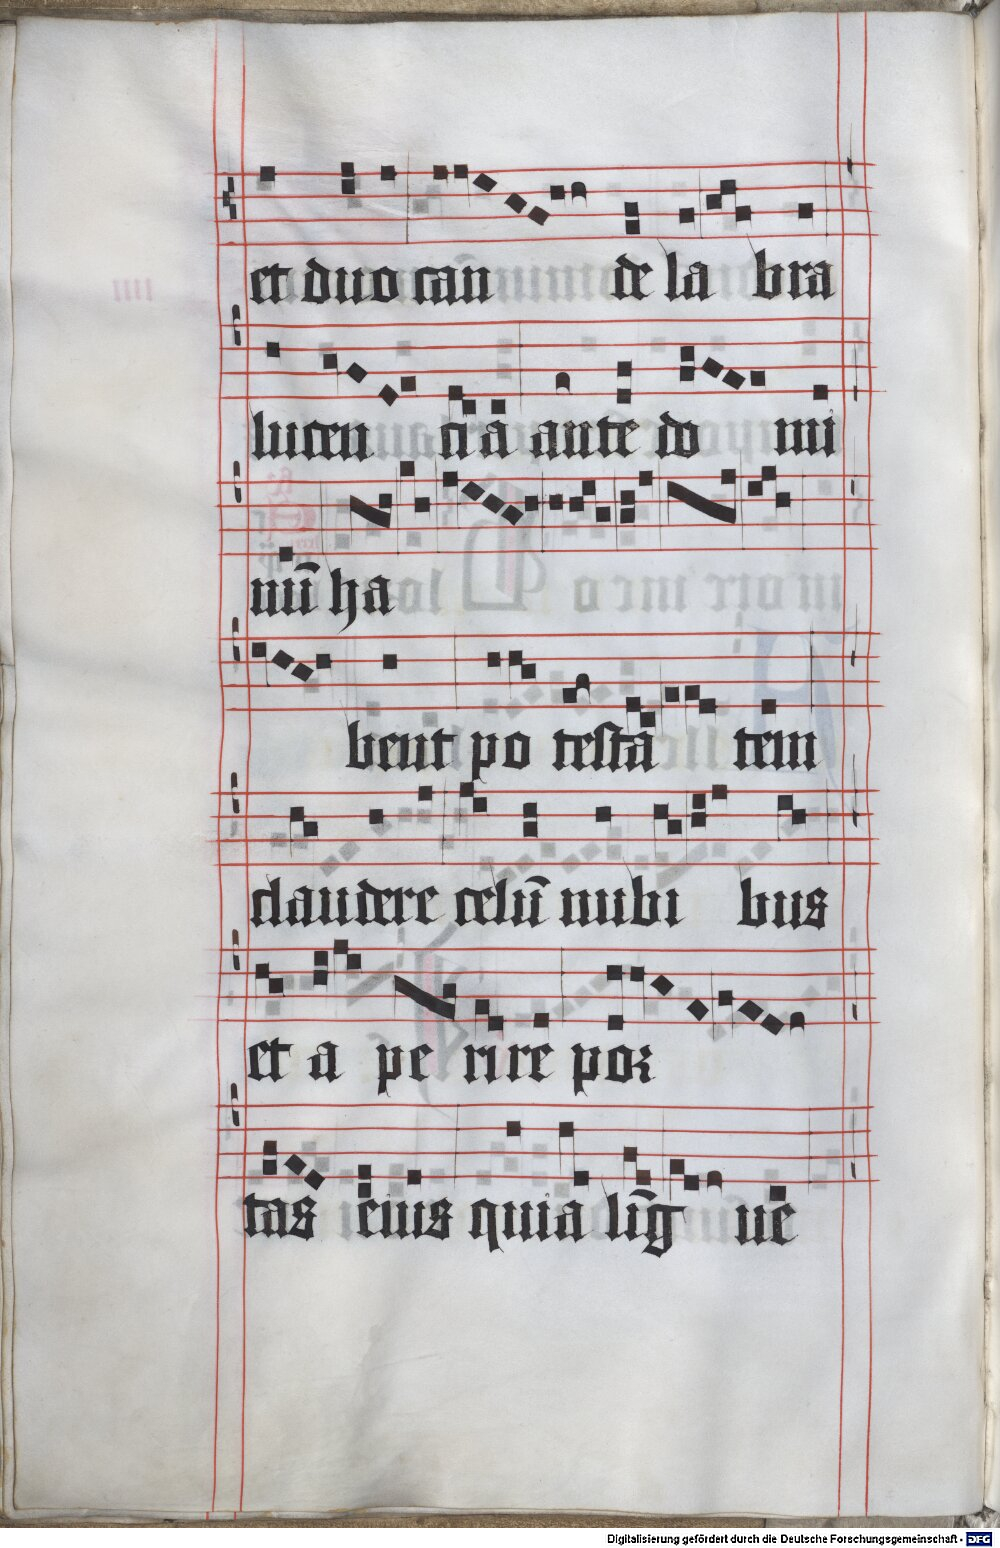 et duo can de la bra
lucen cia ante do mi
nū ha
bent po testa tem
claudere celū nubi bus
et a pe rire por
tas eius quia līg ue
Digitalisierung gefördert durch die Deutsche Forschungsgemeinschaft - DFG